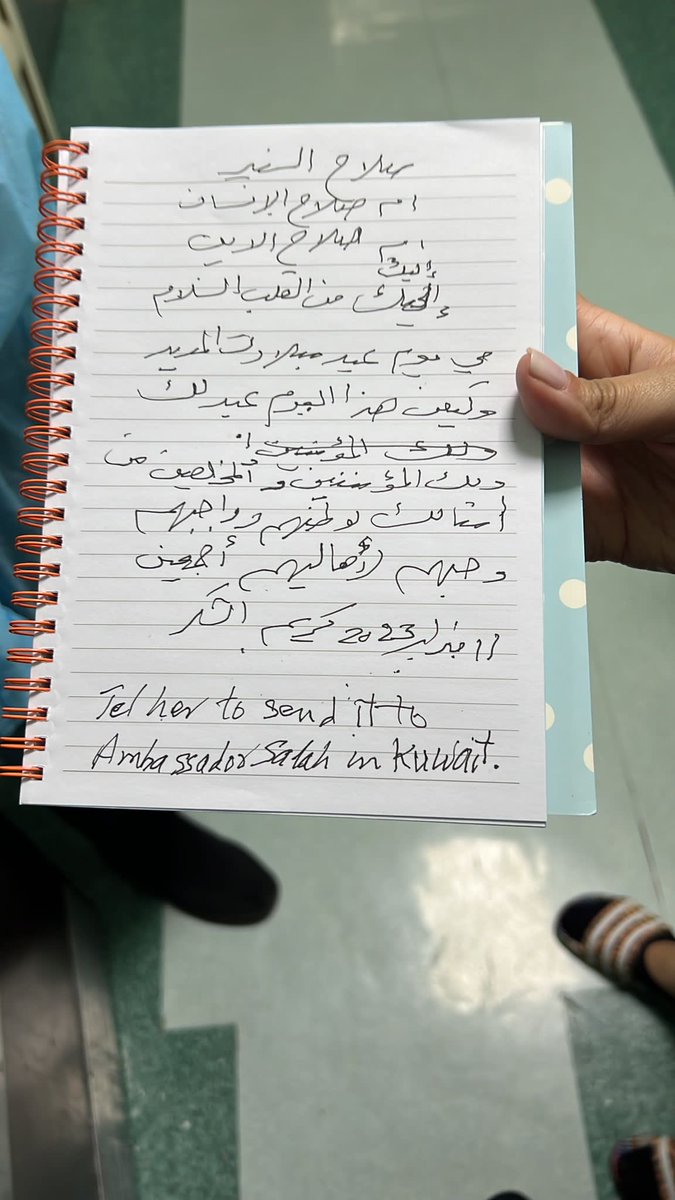 صلاح السفير
ام صلاح الإنسان
ام صلاح الدين
إليك
من القلب السلام
في يوم عيد ميلادك المديد
وكيف هذا اليوم عيد لك
ولك المؤمنين
وبك المؤمنين والمخلصين من
أمثالك لوطنهم وواجبهم
وحبهم لأهاليهم أجمعين
11 فبراير 2023 كريم الشكر
Tel her to send it to
Ambassador Salah in Kuwait.